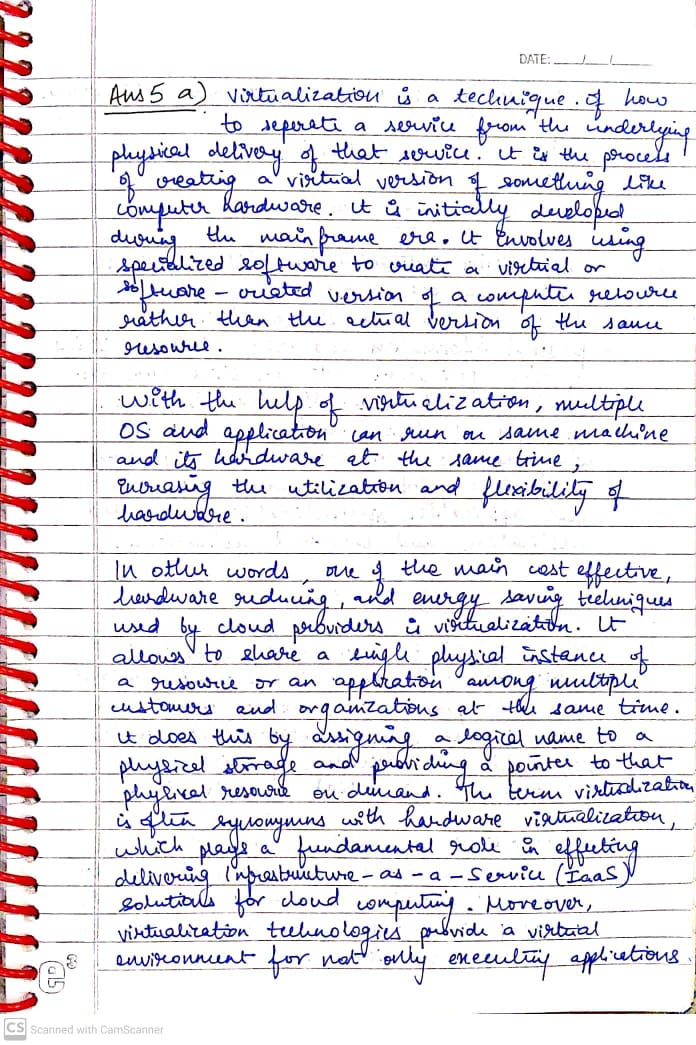 DATE: __/__/__
Ans 5 a) Virtualization is a technique. of how
to seperate a service from the underlying
physical delivery of that service. It is the process
of creating a virtual version of something like
computer hardware. It is initially developed
during the mainframe era. It involves using
specialized software to create a virtual or
software - created version of a computer resource
rather than the actual version of the same
resource.
With the help of virtualization, multiple
OS and application can run on same machine
and its hardware at the same time,
increasing the utilization and flexibility of
hardware.
In other words, one of the main cost effective,
hardware reducing, and energy saving techniques
used by cloud providers is virtualization. It
allows to share a single physical instance of
a resource or an application among multiple
customers and organizations at the same time.
It does this by assigning a logical name to a
physical storage and providing a pointer to that
physical resource on demand. The term virtualization
is often synonymns with hardware virtualization,
which plays a fundamental role in effecting
delivering Infrastructure - as - a - Service (IaaS)
solutions for cloud computing. Moreover,
virtualization technologies provide a virtual
environment for not only executing applications.
e3
CS Scanned with CamScanner